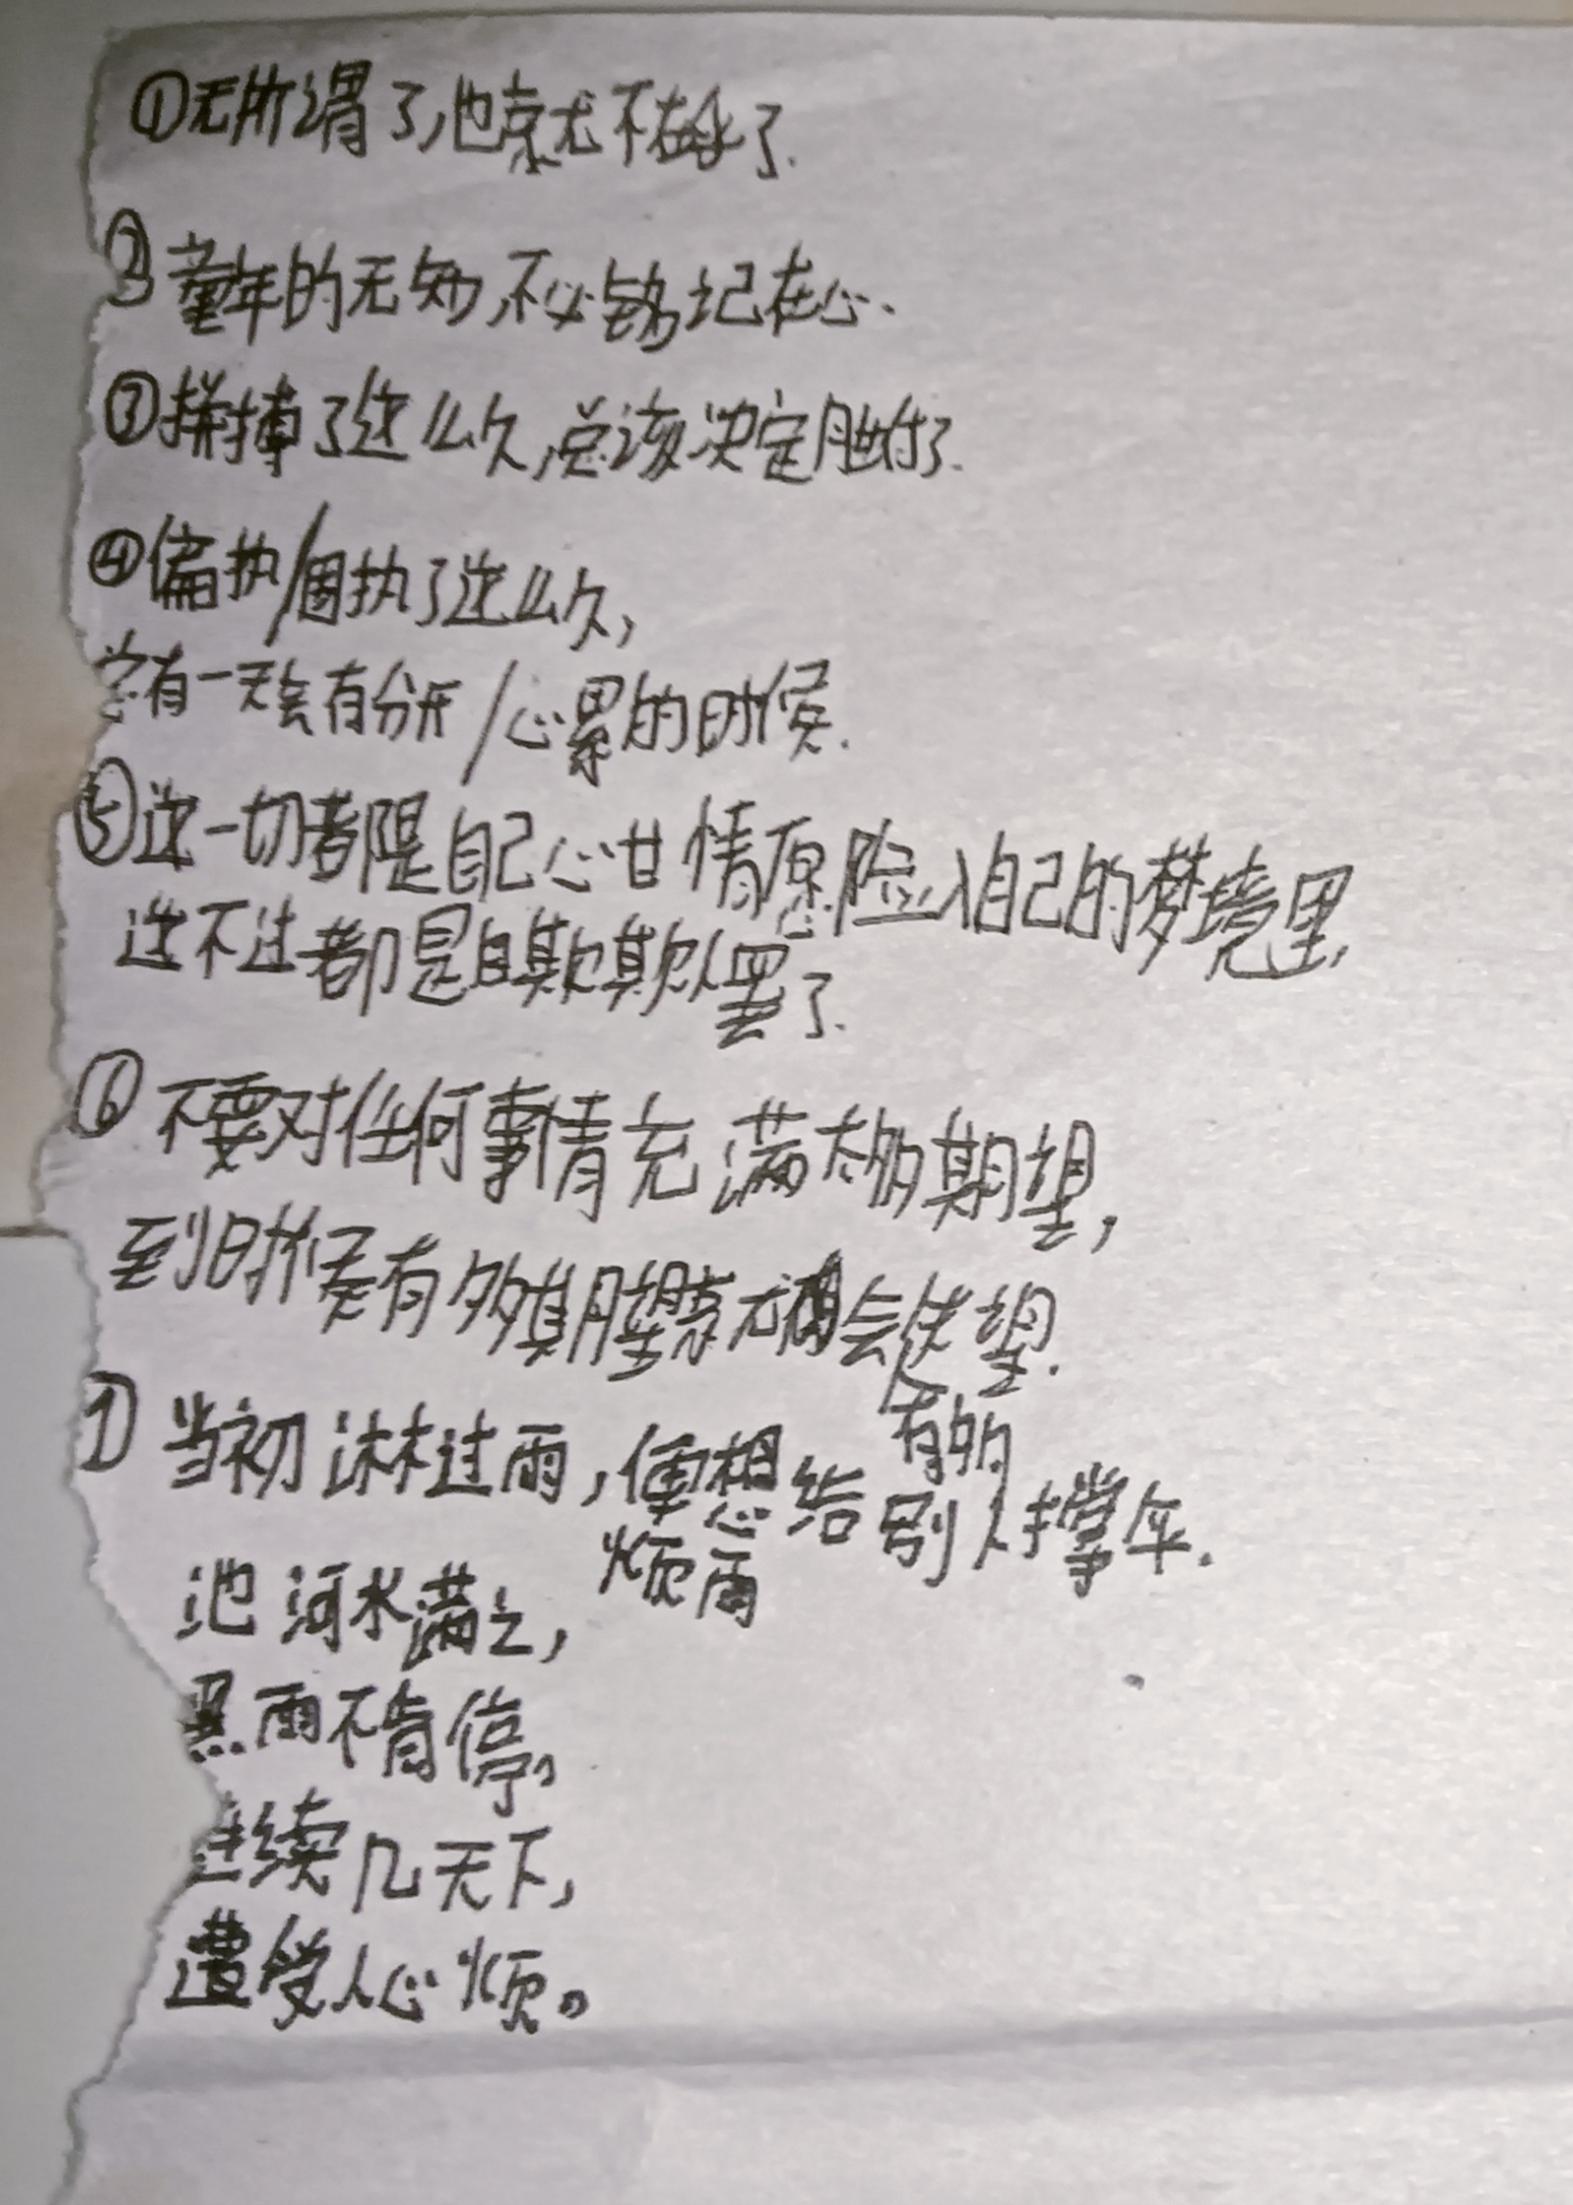 ①无所谓了,也就不在乎了.
②童年的无知,不必铭记在心.
③拼搏了这么久,总该决定胜付了.
④偏执/固执了这么久,
总有一天会有分开/心累的时候.
⑤这一切都是自己心甘情愿险入自己的梦境里,
这不过都是自欺欺人罢了.
⑥不要对任何事情充满太多期望,
到时候有多期望就有会失望.
⑦当初淋过雨,便想给别人撑伞.
有的
烦雨
池河水满之,
黑雨不肯停。
连续几天下,
遭受人心烦。